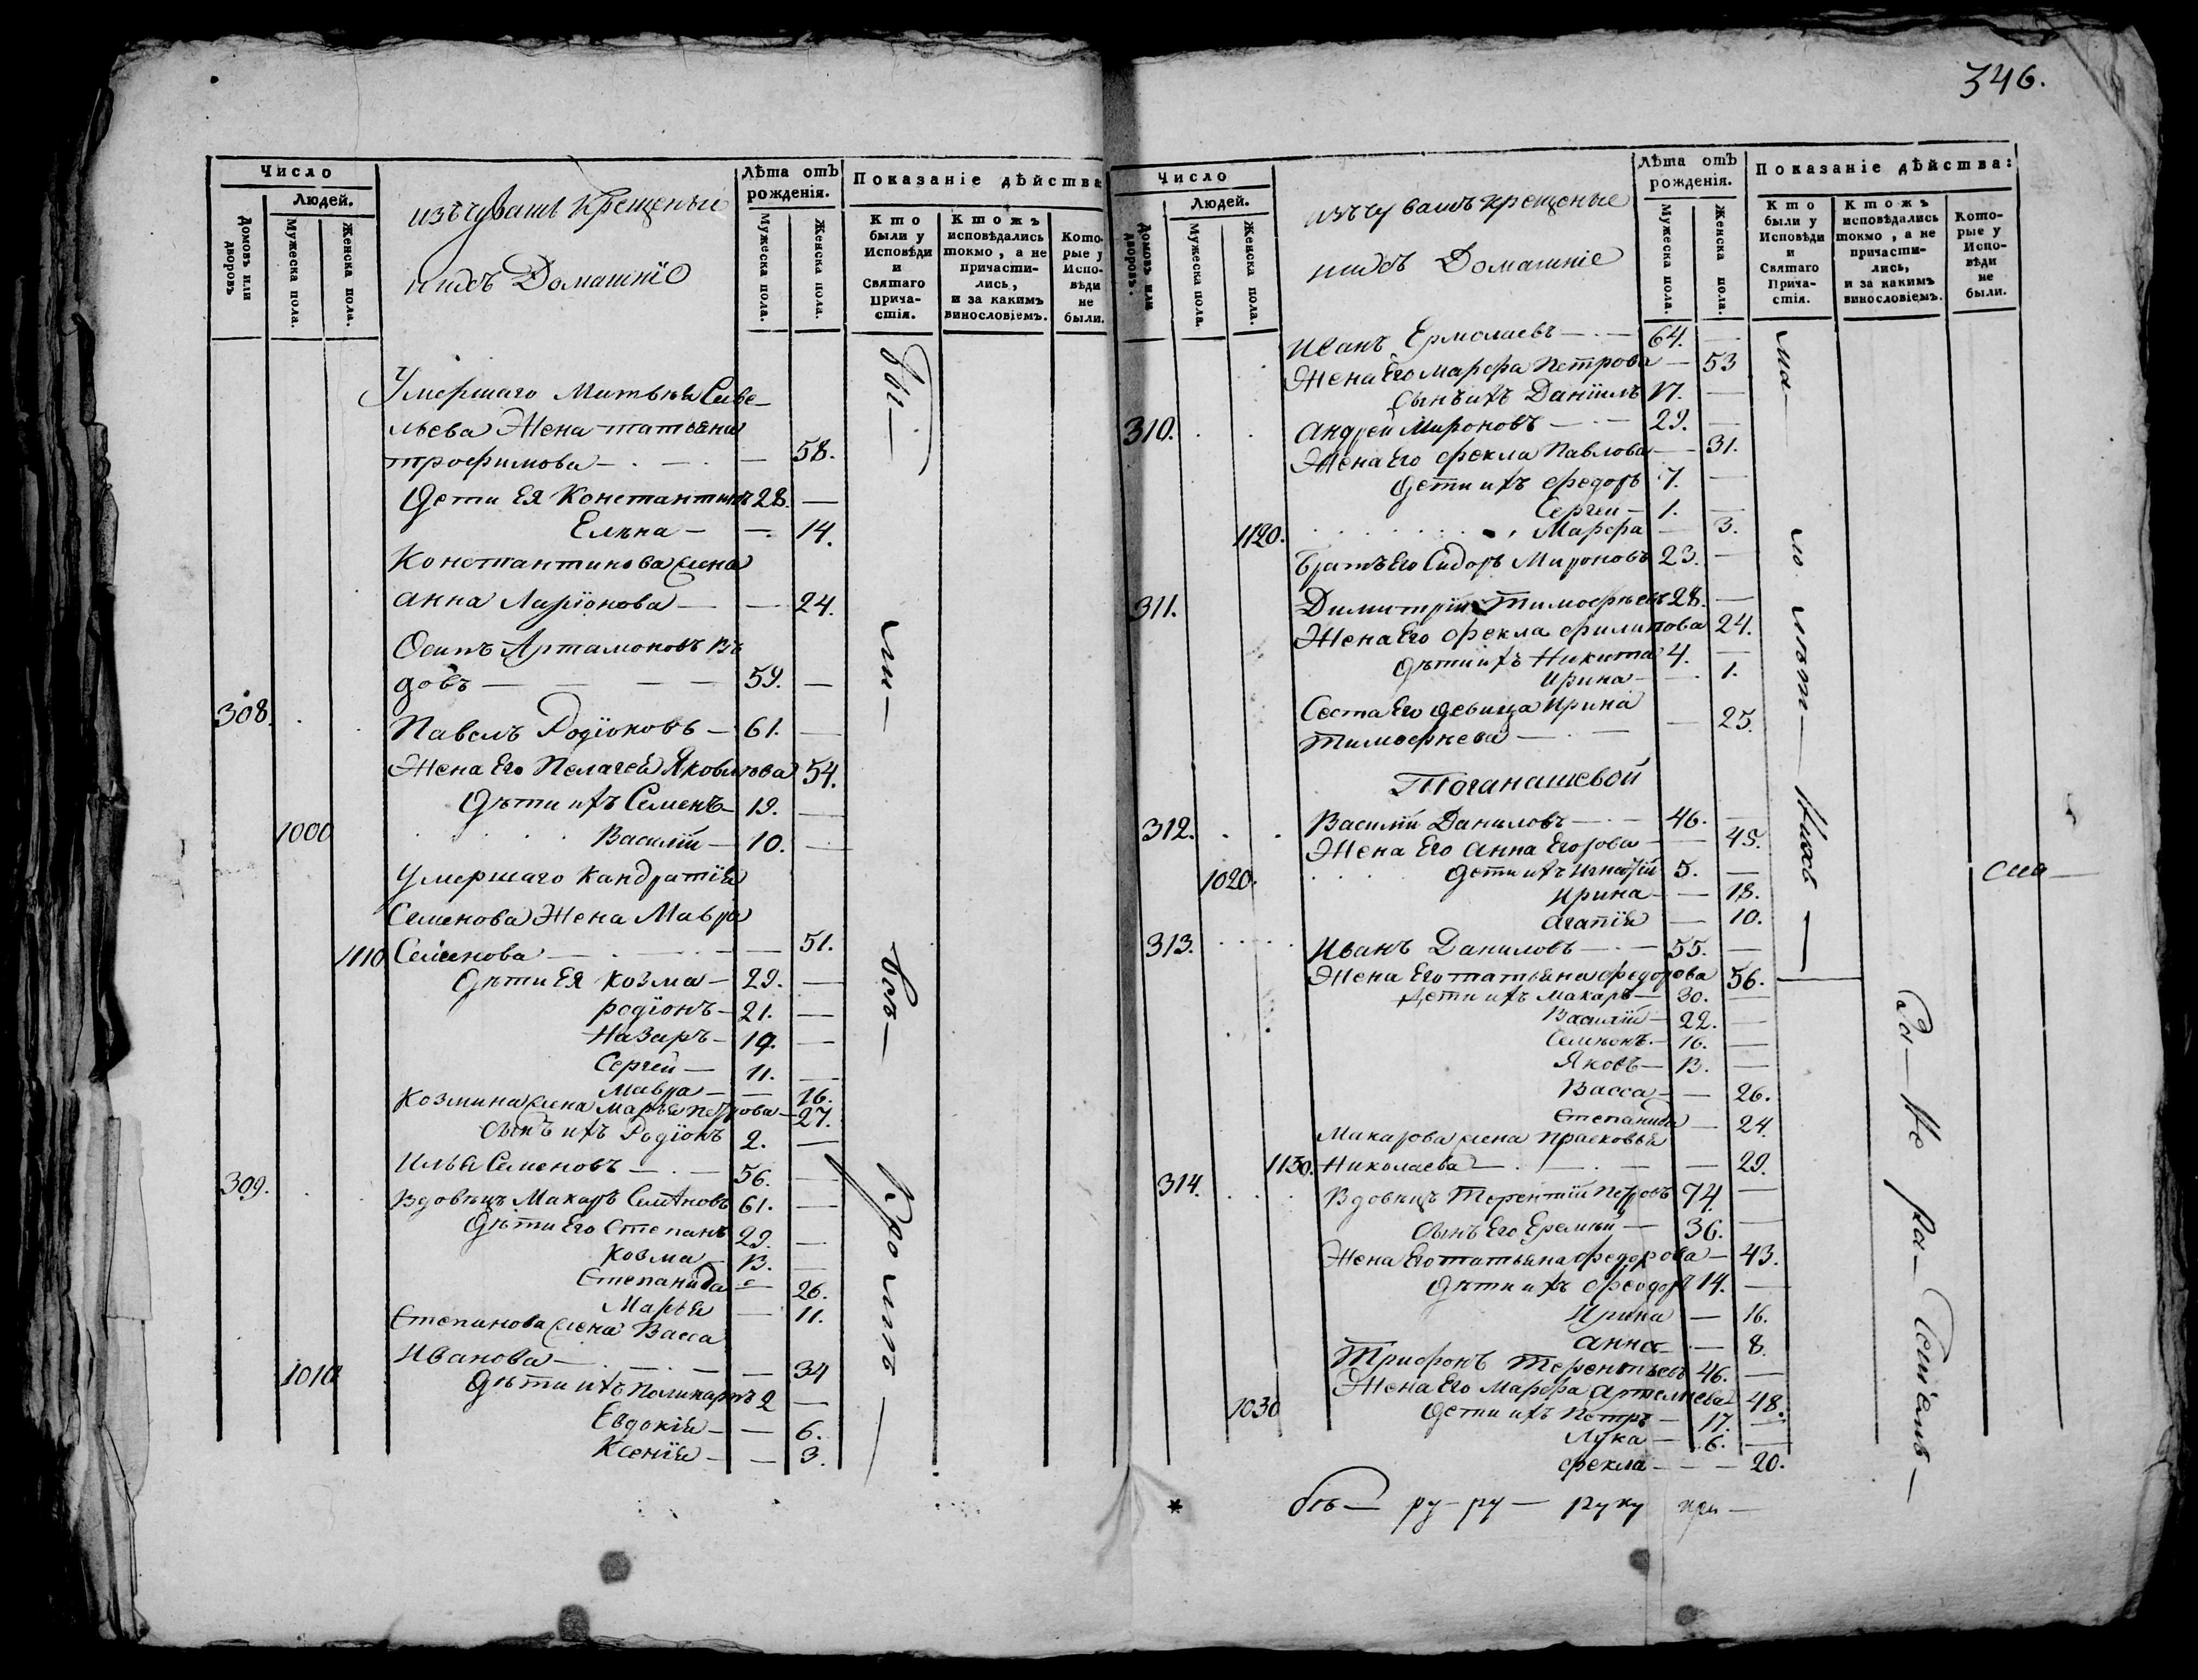 346.
Число
Людей.
Домовъ или дворовъ
Мужеска пола.
Женска пола.
изъ чувашъ крещеныи
и ихъ Домашніе
Лѣта отъ рожденія.
Мужеска пола.
Женска пола.
Показаніе дѣйства
Кто были у Исповѣди и Святаго Прича-стія.
Ктожъ исповѣдались токмо, а не причасти-лись, и за какимъ винословіемъ.
Кото-рые у Испо-вѣди не были.
Умершаго Матвѣя Саве-
льева Жена татьяна
трофимова — 58.
Дети Ея Константинъ 28. —
Елѣна — 14.
Константинова жена
анна Ларіонова — 24.
Осипъ Артамоновъ въ
довъ — 59. —
308. Павелъ Родіоновъ — 61. —
Жена Его Пелагея Яковлева 54.
Дѣти ихъ Семенъ — 19. —
1000 Василій — 10. —
Умершаго Кандратія
Семенова Жена Мавра
1110 Семенова — 51.
Дѣти Ея Козма — 29. —
родіонъ — 21. —
Назаръ — 19. —
Сергей — 11. —
Мавра — 16.
Козмина жена Марья петрова — 27.
Сынъ ихъ Родіонъ 2. —
Илья Семеновъ — 56. —
309. Вдовецъ Макаръ Семеновъ 61. —
Дѣти Его Степанъ 29. —
Козма 13. —
Степанида — 26.
Марья — 11.
Степанова жена Васса
1010 Иванова — 34
Дѣти ихъ Поликарпъ 2 —
Евдокія — 6.
Ксенія — 3.
Число
Людей.
Домовъ или дворовъ.
Мужеска пола.
Женска пола.
изъ чувашъ крещеные
и ихъ Домашніе
Лѣта отъ рожденія.
Мужеска пола.
Женска пола.
Показаніе дѣйства:
Кто были у Исповѣди и Святаго Прича-стія.
Ктожъ исповѣдались токмо, а не причасти-лись, и за какимъ винословіемъ.
Кото-рые у Испо-вѣди не были.
Иванъ Ермолаевъ — 64. —
Жена Его Марфа Петрова — 53
Сынъ ихъ Даніилъ 17. —
310. Андрей Мироновъ — 29. —
Жена Его фекла Павлова — 31.
Дети ихъ федоръ 7. —
Сергеи — 1. —
1120. Марфа — 3.
Братъ Его Сидоръ Мироновъ 23. —
311. Димитрій Тимофѣевъ 28. —
Жена Его фекла филипова 24.
Дѣти ихъ Никита 4. —
Ирина — 1.
Сеста Его девица Ирина
Тимофеева — 25.
Тоганашевой
312. Василій Даниловъ — 46. —
Жена Его анна Егорова — 45.
1020. Дети ихъ Игнатій 5. —
Ирина — 18.
агапія — 10.
313. Иванъ Даниловъ — 55. —
Жена Его татьяна федорова 56.
Дети ихъ Макаръ — 30. —
Василій — 22. —
Семенъ — 16. —
Яковъ — 13. —
Васса — 26.
Степанида — 24.
Макарова жена Прасковья
1130. Николаева — 29.
314. Вдовецъ Терентій Петровъ 74. —
Сынъ Его Еремѣй — 36. —
Жена Его татьяна федорова — 43.
Дѣти ихъ феодоръ 14. —
Ирина — 16.
анна — 8.
Трифонъ Терентьевъ 46. —
Жена Его Марфа Артемиева 48.
1030 Дети ихъ Петръ — 17. —
Лука — 6. —
фекла — 20.
ру — ру — руку при —